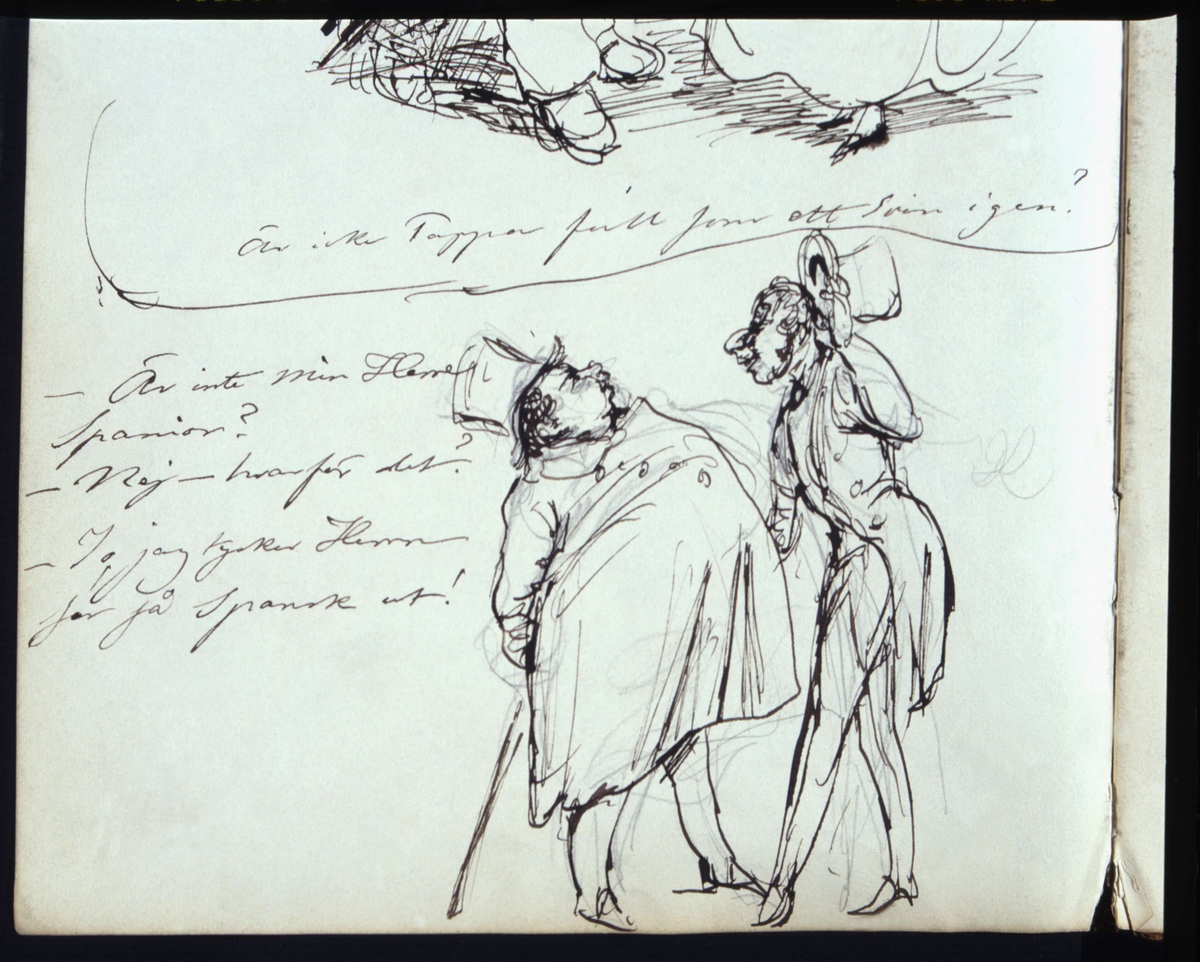 Är icke Pappa full som ett Svin igen?
– Är inte min Herre
Spanior?
– Nej – hvarför det?
– Jo jag tycker Herrn
ser så Spansk ut!